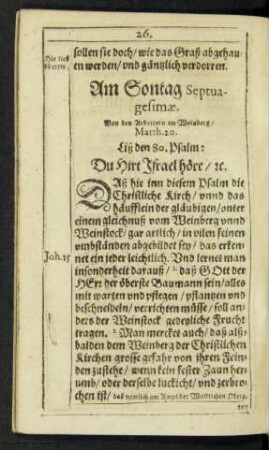 26.
sollen sie doch/ wie das Graß abgehau
en werden/ vnd gäntzlich verdorren.
Am Sontag Septua-
gesimæ.
Von den Arbeitern im Weinberg/
Matth. 20.
Liß den 80. Psalm:
Du Hirt Israel höre/ ꝛc.
DAß hie inn diesem Psalm die
Christliche Kirch/ vnnd das
häufflein der gläubigen/ vnter
einem gleichnuß vom Weinberg vnnd
Weinstock/ gar artlich/ in vilen feinen
vmbständen abgebildet sey/ das erken-
net ein jeder leichtlich. Vnd lernet man
Joh. 15
insonderheit darauß/ 1. daß GOtt der
HErr der öberste Baumann sein/ alles
mit warten vnd pflegen/ pflantzen vnd
beschneideln/ verrichten müsse/ soll an-
ders der Weinstock gedeyliche Frucht
tragen. 2. Man mercket auch/ daß alß-
balden dem Weinberg der Christlichen
Kirchen grosse gefahr von ihren Fein-
den zustehe/ wenn kein fester Zaun her-
umb/ oder derselbe luckicht/ vnd zerbro-
chen ist/ das nemlich am Ampt der Weltlichen Obrig-